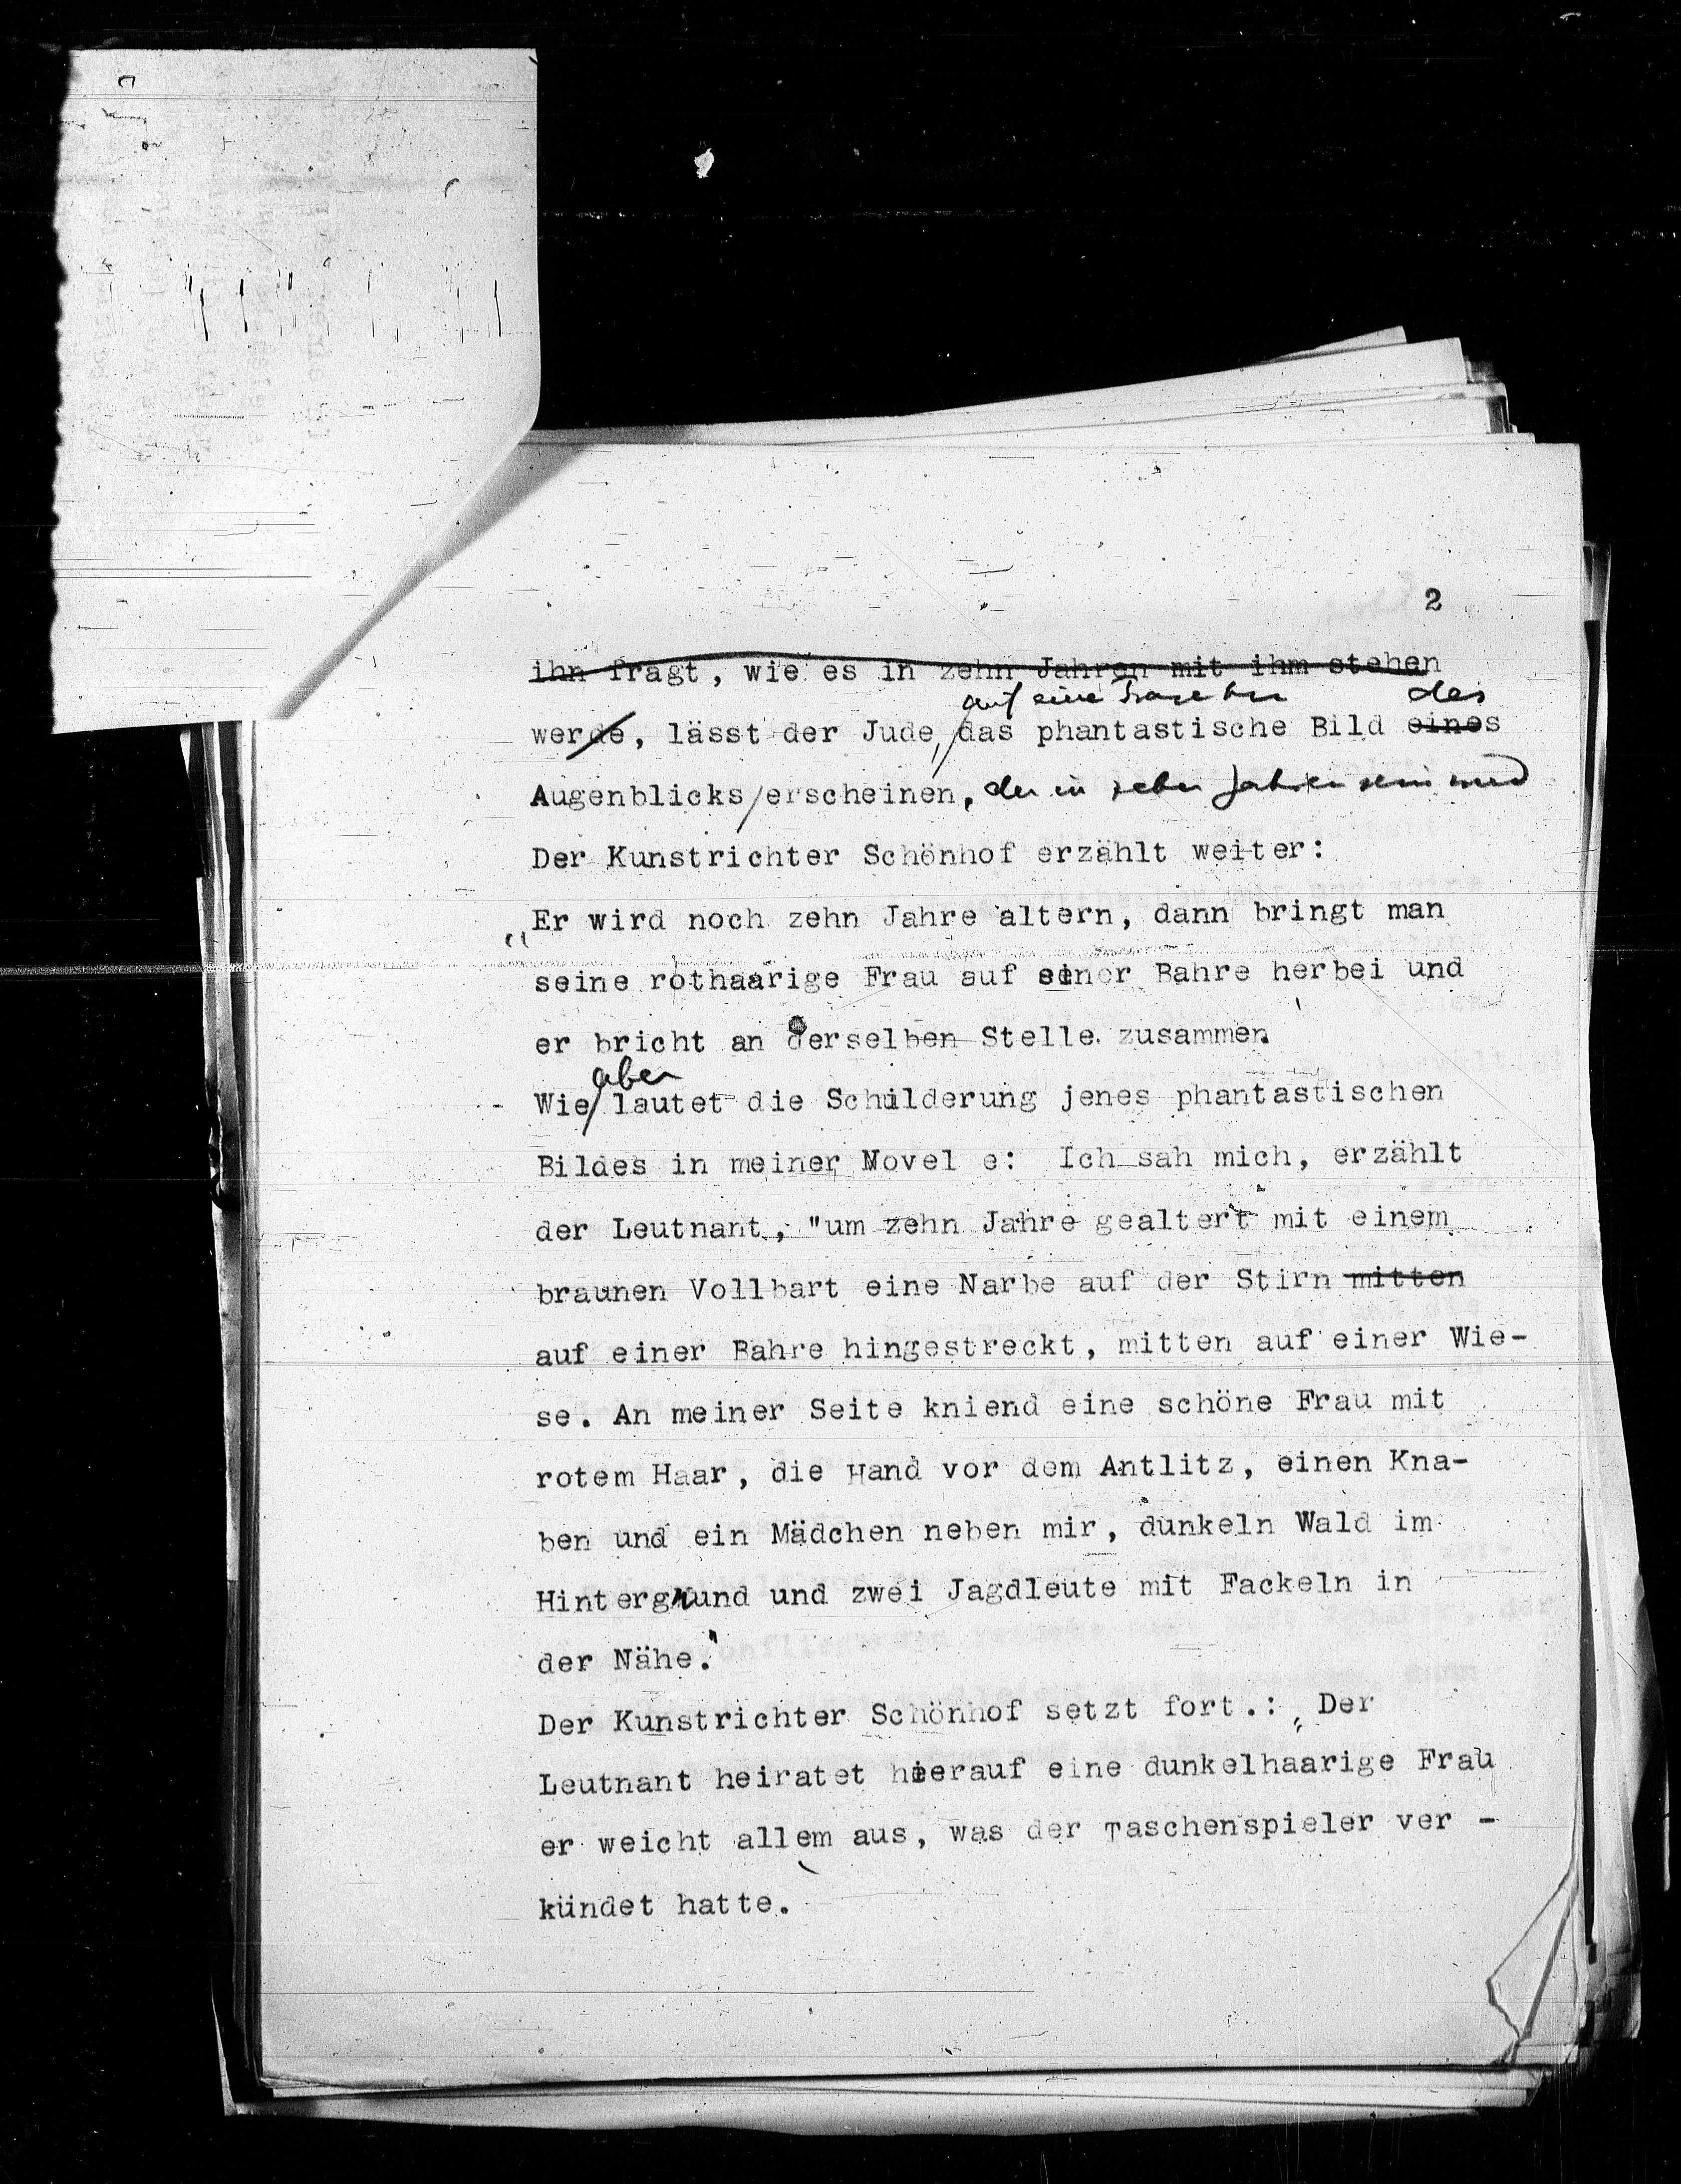 2
ihn fragt, wie es in zehn Jahren mit ihm stehen
auf eine Frage hin des
werde, lässt der Jude, das phantastische Bild eines
Augenblicks erscheinen, der in zehn Jahren sein wird
Der Kunstrichter Schönhof erzählt weiter:
"Er wird noch zehn Jahre altern, dann bringt man
seine rothaarige Frau auf einer Bahre herbei und
er bricht an derselben Stelle zusammen.
aber
- Wie lautet die Schilderung jenes phantastischen
Bildes in meiner Novel e: Ich sah mich, erzählt
der Leutnant, "um zehn Jahre gealtert mit einem
braunen Vollbart eine Narbe auf der Stirn mitten
auf einer Bahre hingestreckt, mitten auf einer Wie-
se. An meiner Seite kniend eine schöne Frau mit
rotem Haar, die Hand vor dem Antlitz, einen Kna-
ben und ein Mädchen neben mir, dunkeln Wald im
Hintergrund und zwei Jagdleute mit Fackeln in
der Nähe."
Der Kunstrichter Schönhof setzt fort.: „Der
Leutnant heiratet hierauf eine dunkelhaarige Frau
er weicht allem aus, was der Taschenspieler ver -
kündet hatte.